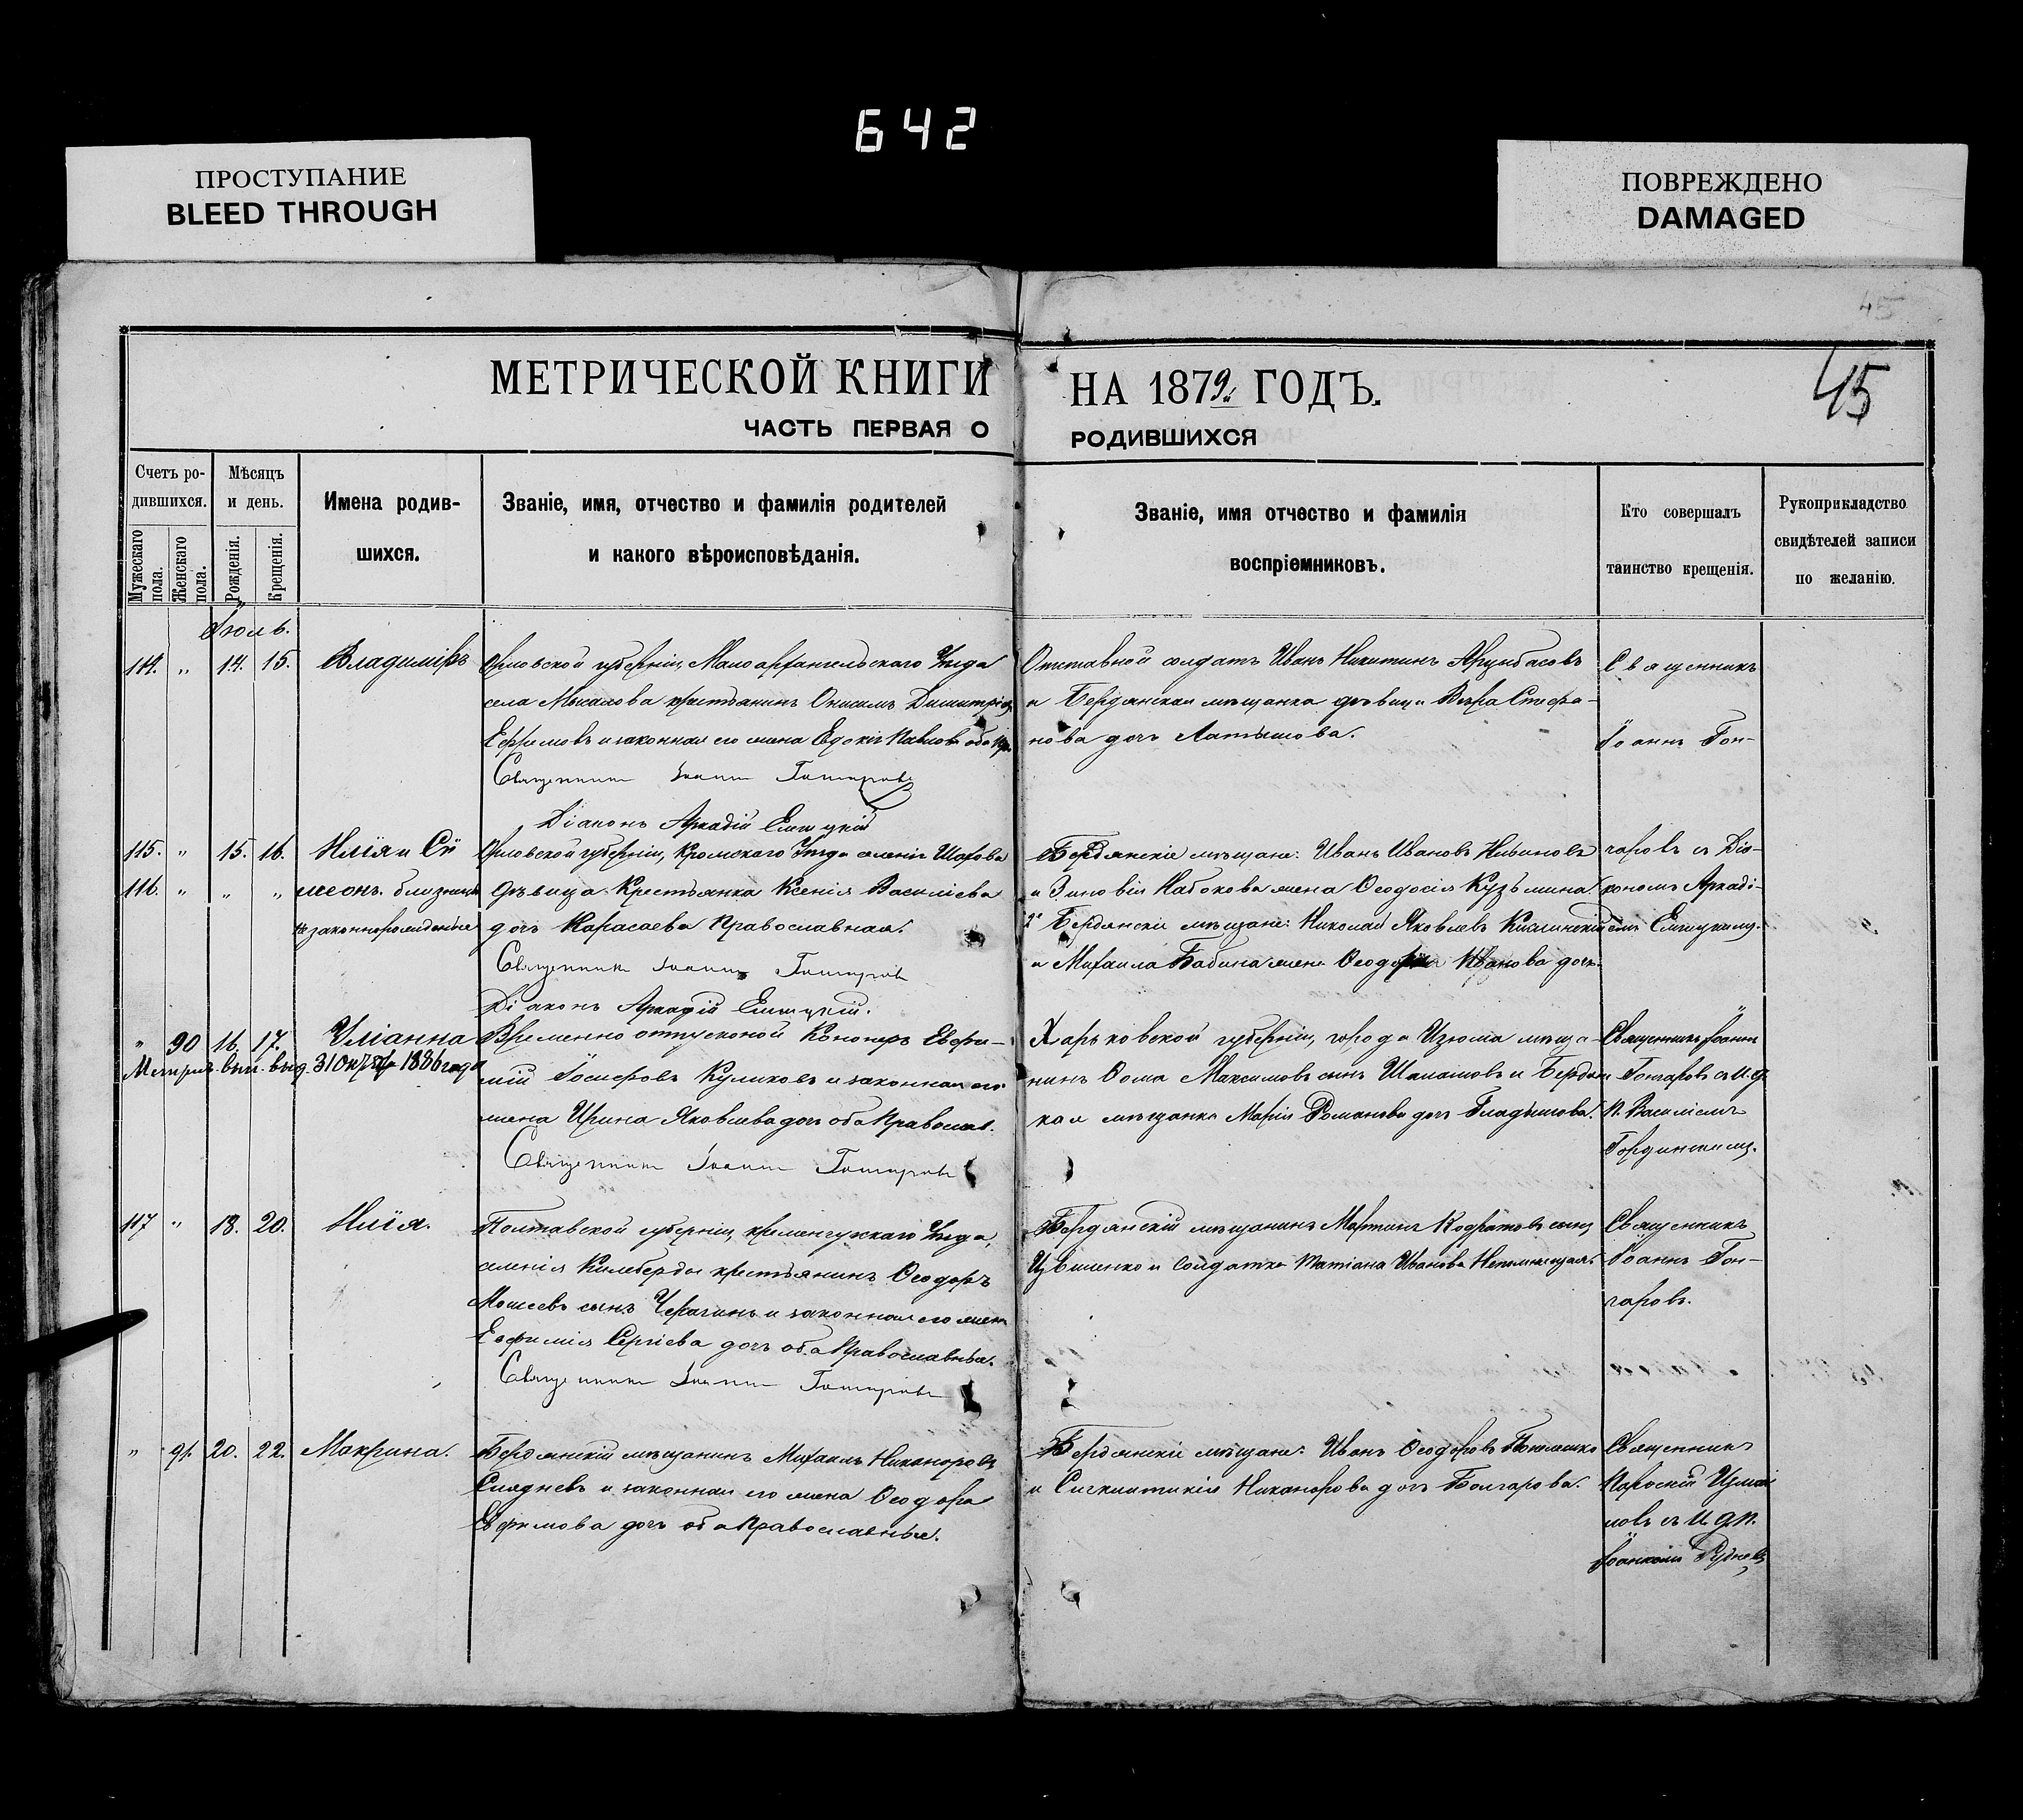 642
ПРОСТУПАНИЕ
BLEED THROUGH
ПОВРЕЖДЕНО
DAMAGED
45
45
МЕТРИЧЕСКОЙ КНИГИ НА 1879 ГОДЪ.
ЧАСТЬ ПЕРВАЯ О РОДИВШИХСЯ
Счетъ ро-
дившихся.
Мужескаго пола.
Женскаго пола.
Мѣсяцъ
и день.
Рожденія.
Крещенія.
Имена родив-
шихся.
Званіе, имя, отчество и фамилія родителей
и какого вѣроисповѣданія.
Званіе, имя отчество и фамилія
воспріемниковъ.
Кто совершалъ
таинство крещенія.
Рукоприкладство
свидѣтелей записи
по желанію.
Іюль.
114. " 14. 15. Владиміръ
Орловской губерніи, Малоархангельскаго Уѣзда
села крестьянинъ Онисимъ Димитріевъ
Ефимовъ и законная его жена Павлова оба
Священникъ Іоаннъ Гончаровъ
Діаконъ Аркадій
Отставной солдатъ Иванъ Никитинъ
и Бердянская мѣщанка дѣвица Вѣра Стефа-
нова дочь Латышова.
Священникъ
Іоаннъ Гон-
чаровъ съ Діа-
кономъ Аркаді-
емъ
115. " 15. 16. Илія и Си
116. " " " меонъ близнецы
незаконнорожденные
Орловской губерніи, Кромскаго Уѣзда селенія Шахова
дѣвица Крестьянка Ксенія Василіева
дочь Карасаева Православная.
Священникъ Іоаннъ Гончаровъ
Діаконъ Аркадій
Бердянскіе мѣщане: Иванъ Ивановъ
и Зиновія Набокова жена Ѳеодосія Кузьмина
2е Бердянскіе мѣщане: Николай Яковлевъ
и Михаила Бабина жена Иванова дочь.
" 90 16. 17. Уліанна
Метрич. вып. выд. 31 Октября 1886 года
Временно отпускной Канониръ Евфи-
мій Іосифовъ Куликовъ и законная его
жена Ирина Яковлева дочь оба Православ.
Священникъ Іоаннъ Гончаровъ
Харьковской губерніи, города Изюма мѣща-
нинъ Ѳома Максимовъ сынъ Шалашовъ и Бердянс
кая мѣщанка Марія Романова дочь Гладышова.
Священникъ Іоаннъ
Гончаровъ съ И. д.
П. Василіемъ
Гординскимъ.
117 " 18. 20. Илія.
Полтавской губерніи, кременчугскаго Уѣзда,
селенія Келеберды крестьянинъ Ѳеодоръ
Моисеевъ сынъ и законная его жена
Евфимія Сергіева дочь оба Православные.
Священникъ Іоаннъ Гончаровъ
Бердянскій мѣщанинъ Мартинъ Кодратовъ сынъ
и Солдатка Татіана Иванова Непомнющая.
Священникъ
Іоаннъ Гон-
чаровъ.
" 91. 20. 22. Макрина.
Бердянскій мѣщанинъ Михаилъ Никаноровъ
и законная его жена Ѳеодора
Ефимова дочь оба Православные.
Бердянскіе мѣщане: Иванъ Ѳеодоровъ
и Сигклитикія Никанорова дочь Болгарова.
Священникъ
съ И д п.
Рудневъ